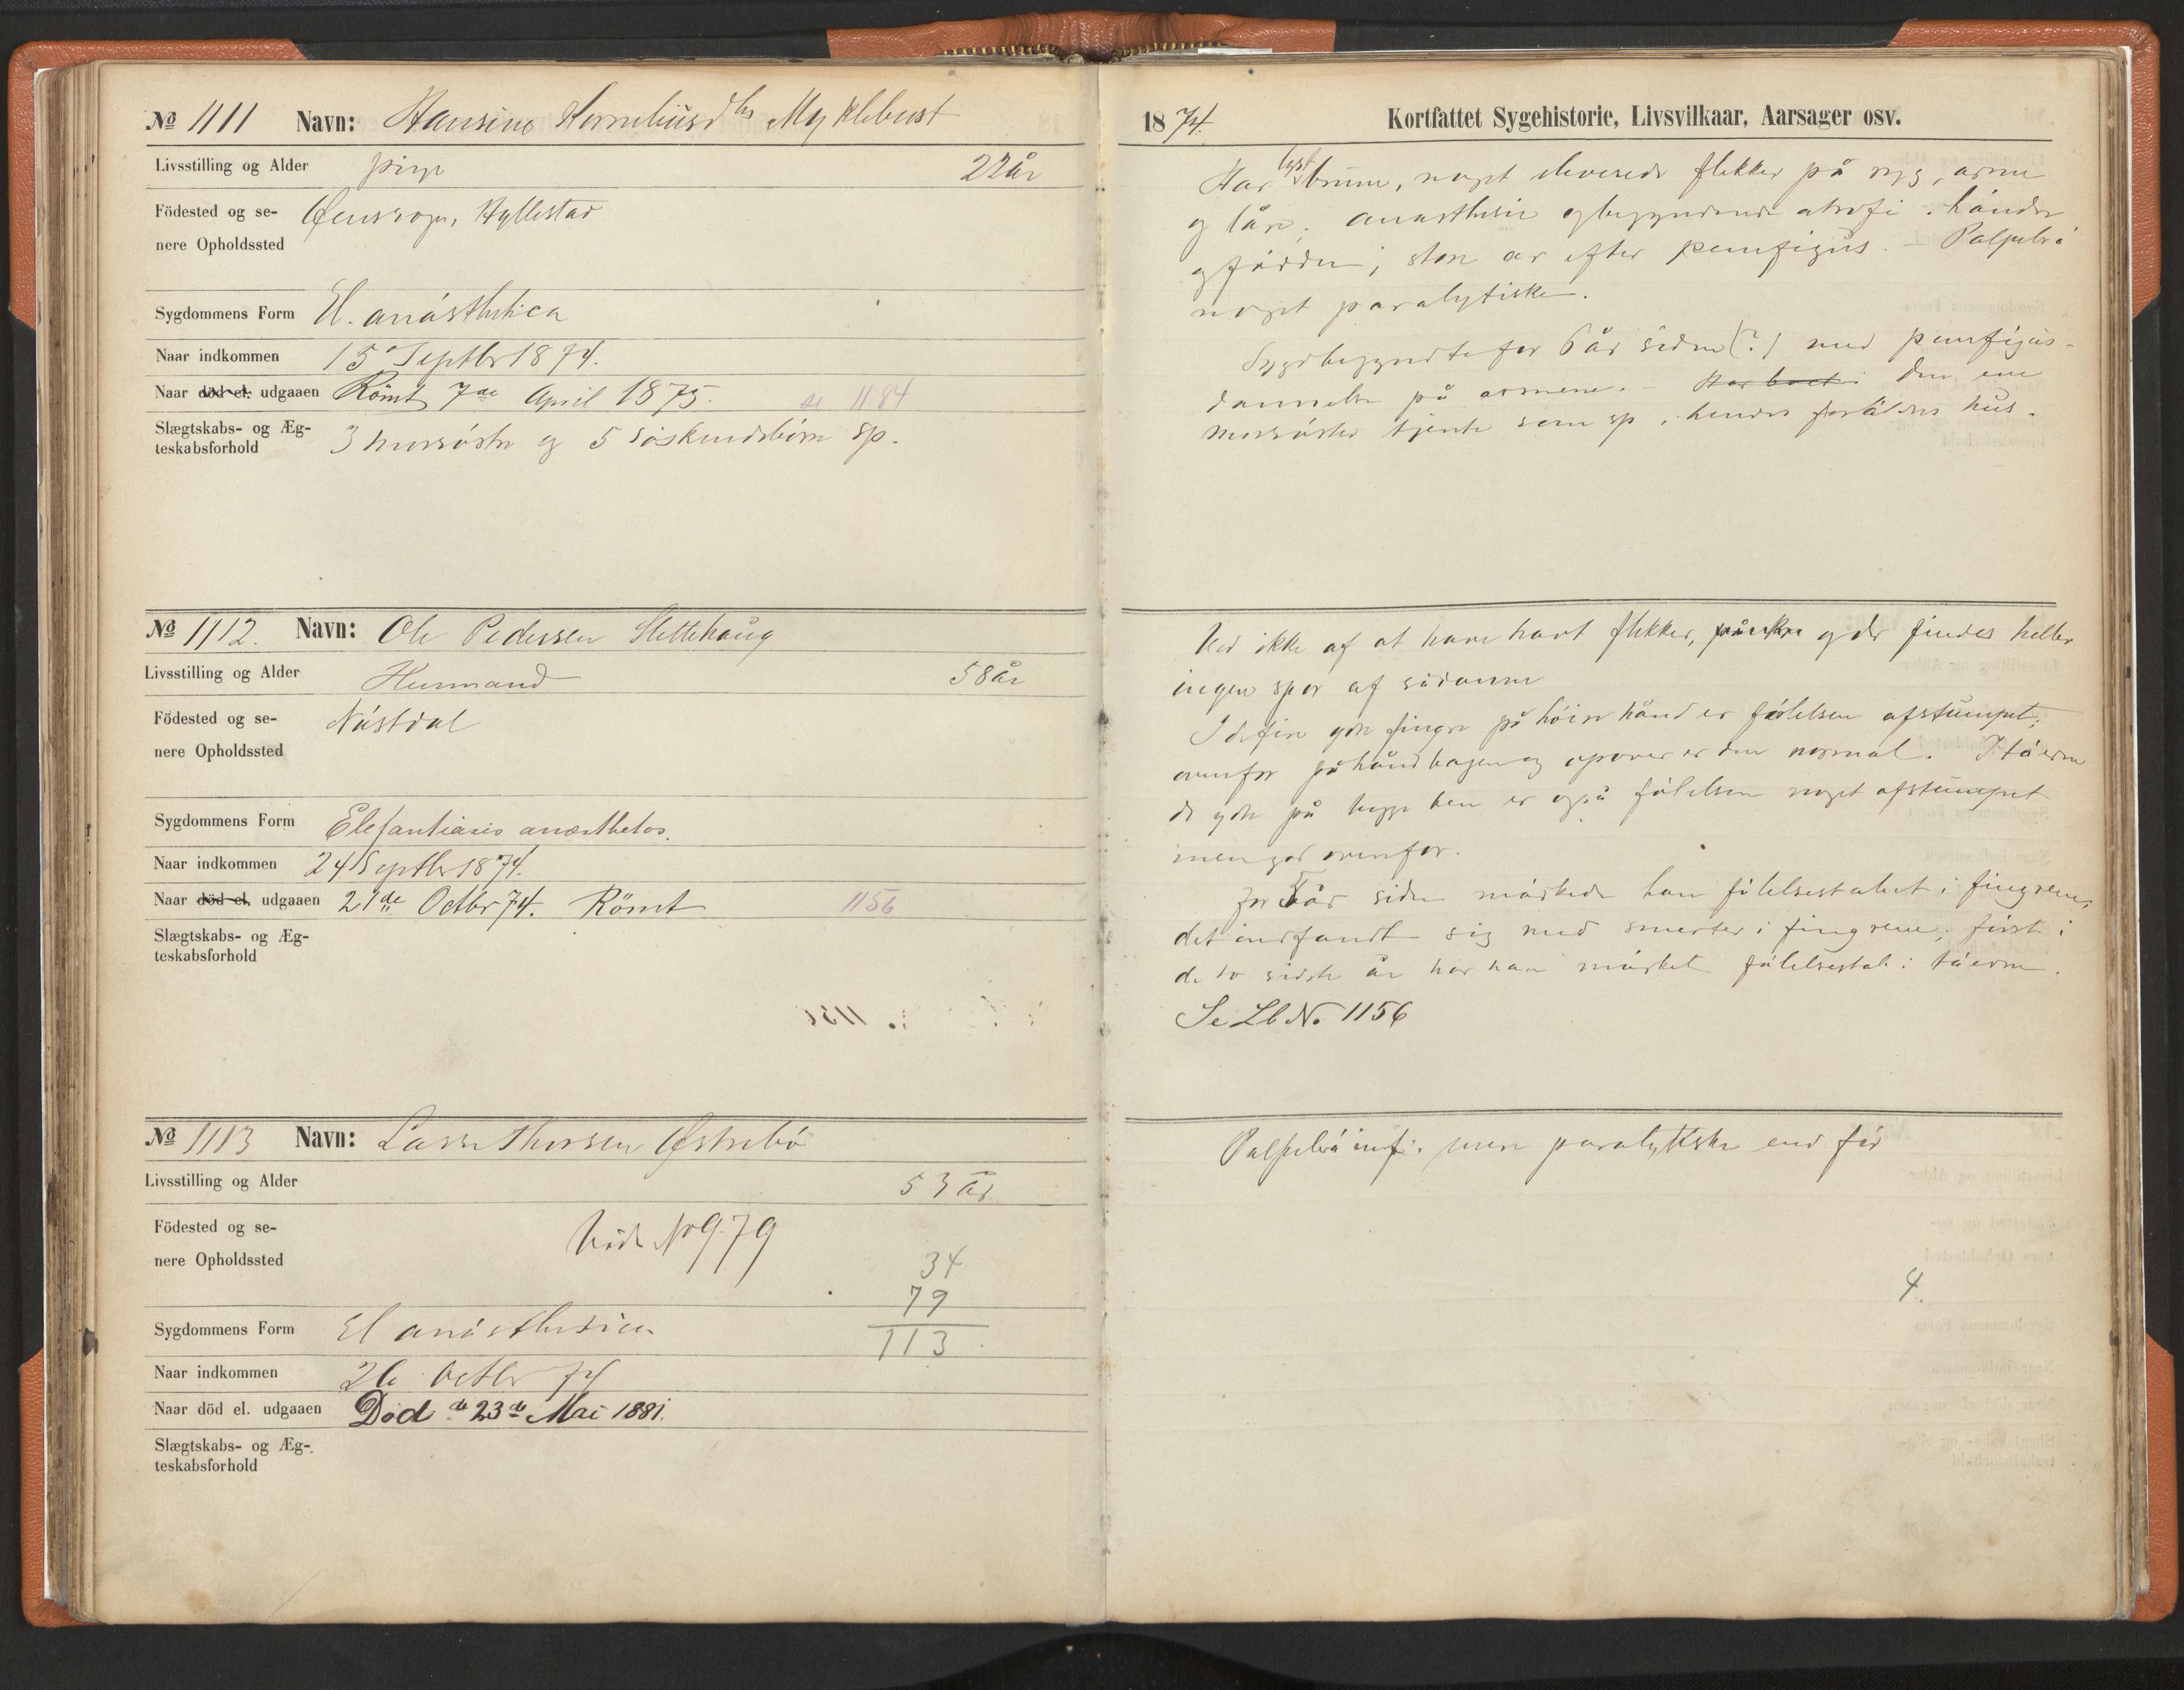 № 1111 Navn: Hansine Korneliusdtr Myklebust
Livsstilling og Alder pige 22 år
Födested og se-
nere Opholdssted
Hyllestad
Sygdommens Form El. anästhetica
Naar indkommen 15 Septbr 1874.
Naar död el. udgaaen Römt 7de April 1875. se 1184
Slægtskabs- og Æg-
teskabsforhold
3 morsöstre og 5 söskendebörn sp.
№ 1112. Navn: Ole Pedersen Slettehaug
Livsstilling og Alder Husmand 58 år
Födested og se-
nere Opholdssted
Nästdal
Sygdommens Form Elefantiasis anæsthetos.
Naar indkommen 24 Septbr 1874.
Naar död el. udgaaen 21de Octbr 74. Römt 1156
Slægtskabs- og Æg-
teskabsforhold
№ 1113 Navn: Lasse Thorsen Østrebö
Livsstilling og Alder 53 år
Födested og se-
nere Opholdssted
Vide No 979
34
79
113
Sygdommens Form El anästhesica
Naar indkommen 26 Octbr 74
Naar död el. udgaaen Död d. 23de Mai 1881.
Slægtskabs- og Æg-
teskabsforhold
1874. Kortfattet Sygehistorie, Livsvilkaar, Aarsager osv.
Har lyst brune, noget eleverede flekker på ryg, arme
og låre; anästhesie og begyndende atrofi i händer
og födder; store ar efter pemfigus. – Palpebrä
noget paralytiske.
Sygd begyndte for 6 år siden (?) med pemfigus-
dannelse på armene. – Har boet i den ene
morsöster tjente som sp. i hendes forældres hus.
Ved ikke af at have havt flekker, og der findes heller
ingen spor af sådanne
I de fire ydre fingre på höire hånd er fölelsen afstumpet;
ovenfor på håndbagen og opover er den normal. I täerne
de ydre på begge ben er også fölelsen noget afstumpet
men god ovenfor.
for 5 år siden märkede han fölelsestabet i fingrene,
det indfandt sig med smerter i fingrene; först i
de to sidste år har han märket fölelsestab i täerne.
Se Lb No. 1156
Palpebrä inf. mere paralytiske end för
4.